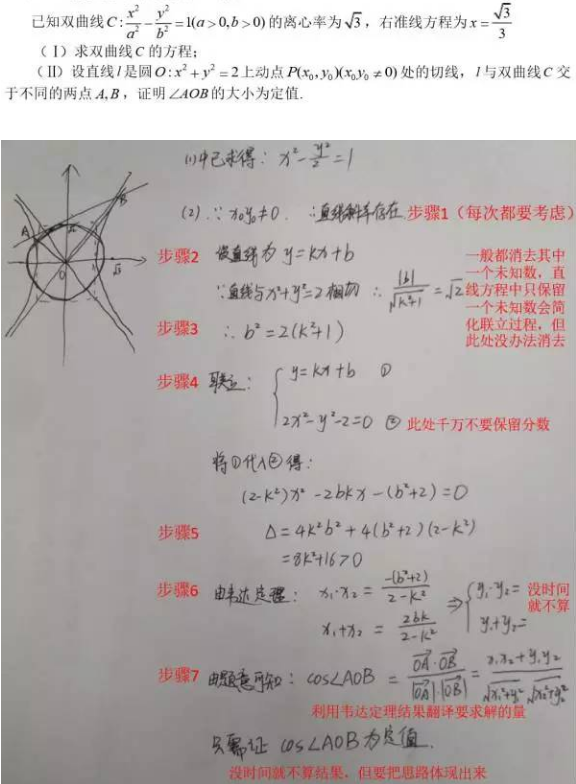 已知双曲线C:x²/a²-y²/b²=1(a>0,b>0)的离心率为√3，右准线方程为x=√3/3
（Ⅰ）求双曲线C的方程；
（Ⅱ）设直线l是圆O:x²+y²=2上动点P(x₀,y₀)(x₀y₀≠0)处的切线，l与双曲线C交
于不同的两点A,B，证明∠AOB的大小为定值.
(1)中已求得：x²-y²/2=1
(2).∵x₀y₀≠0. ∴直线斜率存在 步骤1（每次都要考虑）
步骤2 设直线为 y=kx+b
∵直线与x²+y²=2相切 ∴ |b|/√(k²+1)=√2
一般都消去其中
一个未知数，直
线方程中只保留
一个未知数会简
化联立过程，但
此处没办法消去
步骤3 ∴b²=2(k²+1)
步骤4 联立：{ y=kx+b ①
2x²-y²-2=0 ② 此处千万不要保留分数
将①代入②得：
(2-k²)x²-2bkx-(b²+2)=0
步骤5 Δ=4k²b²+4(b²+2)(2-k²)
=8k²+16>0
步骤6 由韦达定理：x₁·x₂=-(b²+2)/(2-k²)
x₁+x₂=2bk/(2-k²)
⇒{ y₁·y₂=
y₁+y₂=
没时间
就不算
步骤7 由题意可知：cos∠AOB=OA·OB/|OA|·|OB|=x₁x₂+y₁y₂/√x₁²+y₁²√x₂²+y₂²
利用韦达定理结果翻译要求解的量
只需证 cos∠AOB为定值.
没时间就不算结果，但要把思路体现出来
A
B
O
√2